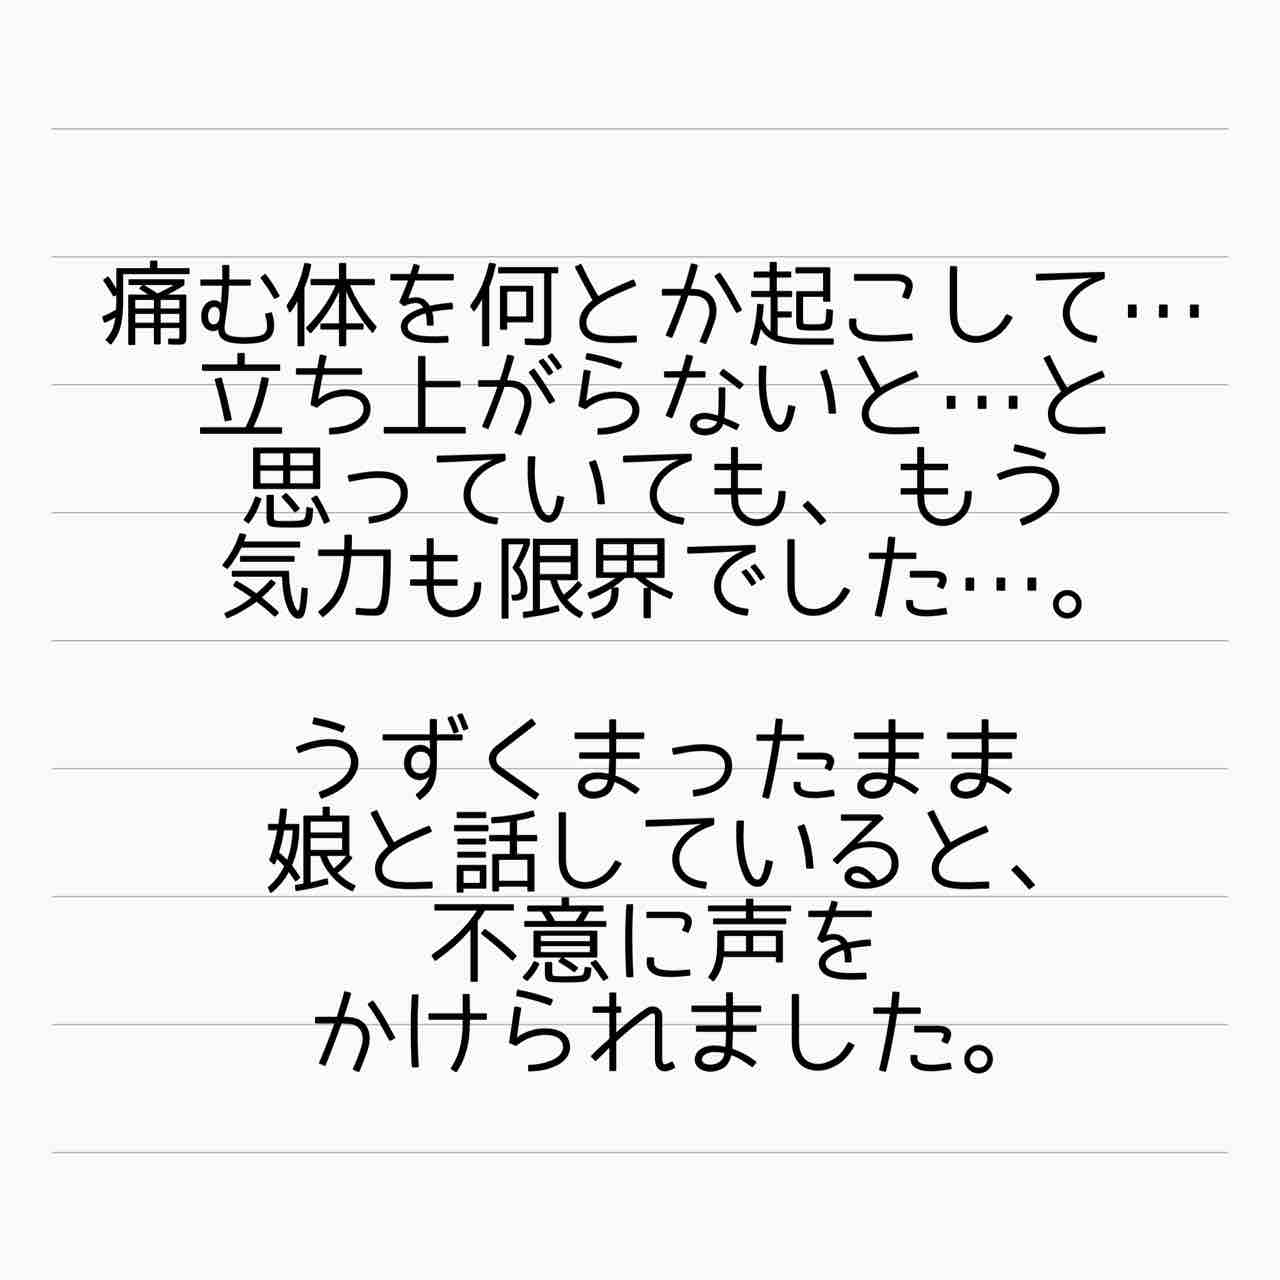 痛む体を何とか起こして…
立ち上がらないと…と
思っていても、もう
気力も限界でした…。
うずくまったまま
娘と話していると、
不意に声を
かけられました。